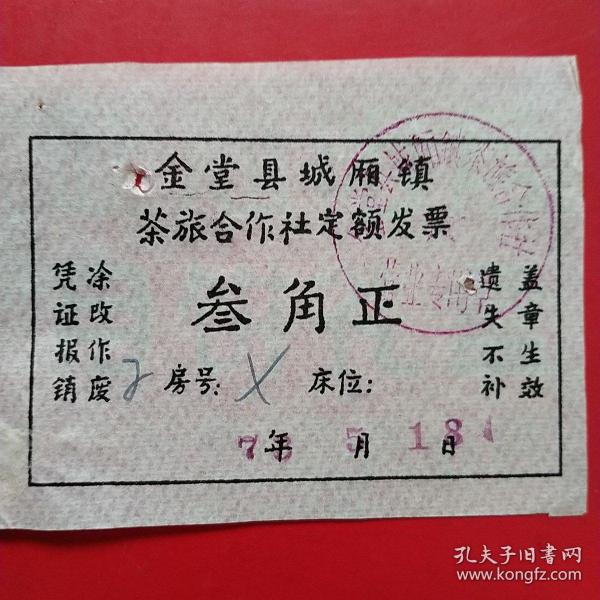 金堂县城厢镇
茶旅合作社定额发票
叁角正
凭证报销
涂改作废
遗失不补
盖章生效
房号: X 床位:
年 5 月 18 日
孔夫子旧书网
www.kongfz.com